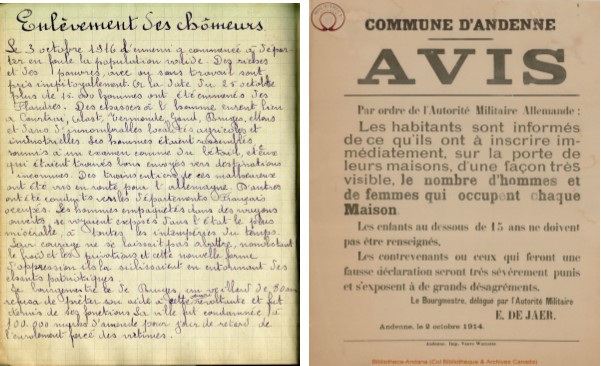 Enlèvement des chômeurs.
Le 3 octobre 1916 l'ennemi a commencé à dépor-
ter en foule la population valide. Des riches
et des pauvres, avec ou sans travail sont
pris impitoyablement. A la date du 25 octobre
plus de 15.000 hommes ont été emmenés des
Flandres. Des chasses à l'homme eurent lieu
à Courtrai, Alost, Termonde, Gand, Bruges,
et dans d'innombrables localités agricoles et
industrielles. Les hommes étaient rassemblés
soumis à un examen comme du bétail, et ceux
qui étaient trouvés bons envoyés vers des destinations
inconnues. Des trains entiers de ces malheureux
ont été vus en route pour l'allemagne. D'autres
ont été conduits vers les départements Français
occupés. Les hommes empaquetés dans des wagons
ouverts se voyaient exposés dans l'état le plus
misérable, à toutes les intempéries du temps.
Leur courage ne se laissait pas abattre, nonobstant
le froid et les privations et cette nouvelle forme
d'oppression ils la subissaient en entonnant des
chants patriotiques.
Le bourgmestre de Bruges, un vieillard de 80 ans
refusa de prêter son aide à cette révoltante et fut
démis de ses fonctions la ville fut condamnée à
100.000 d'amende pour jour de retard de
l'enrolement forcé des victimes.
COMMUNE D'ANDENNE
AVIS
Par ordre de l'Autorité Militaire Allemande :
Les habitants sont informés
de ce qu'ils ont à inscrire im-
médiatement, sur la porte de
leurs maisons, d'une façon très
visible, le nombre d'hommes et
de femmes qui occupent chaque
Maison.
Les enfants au dessous de 15 ans ne doivent
pas être renseignés.
Les contrevenants ou ceux qui feront une
fausse déclaration seront très sévèrement punis
et s'exposent à de grands désagréments.
Le Bourgmestre, délégué par l'Autorité Militaire
E. DE JAER.
Andenne, le 2 octobre 1914.
Andenne. Imp. Veuve
Bibliotheca-Andana (Col Bibliothèque & Archives Canada)